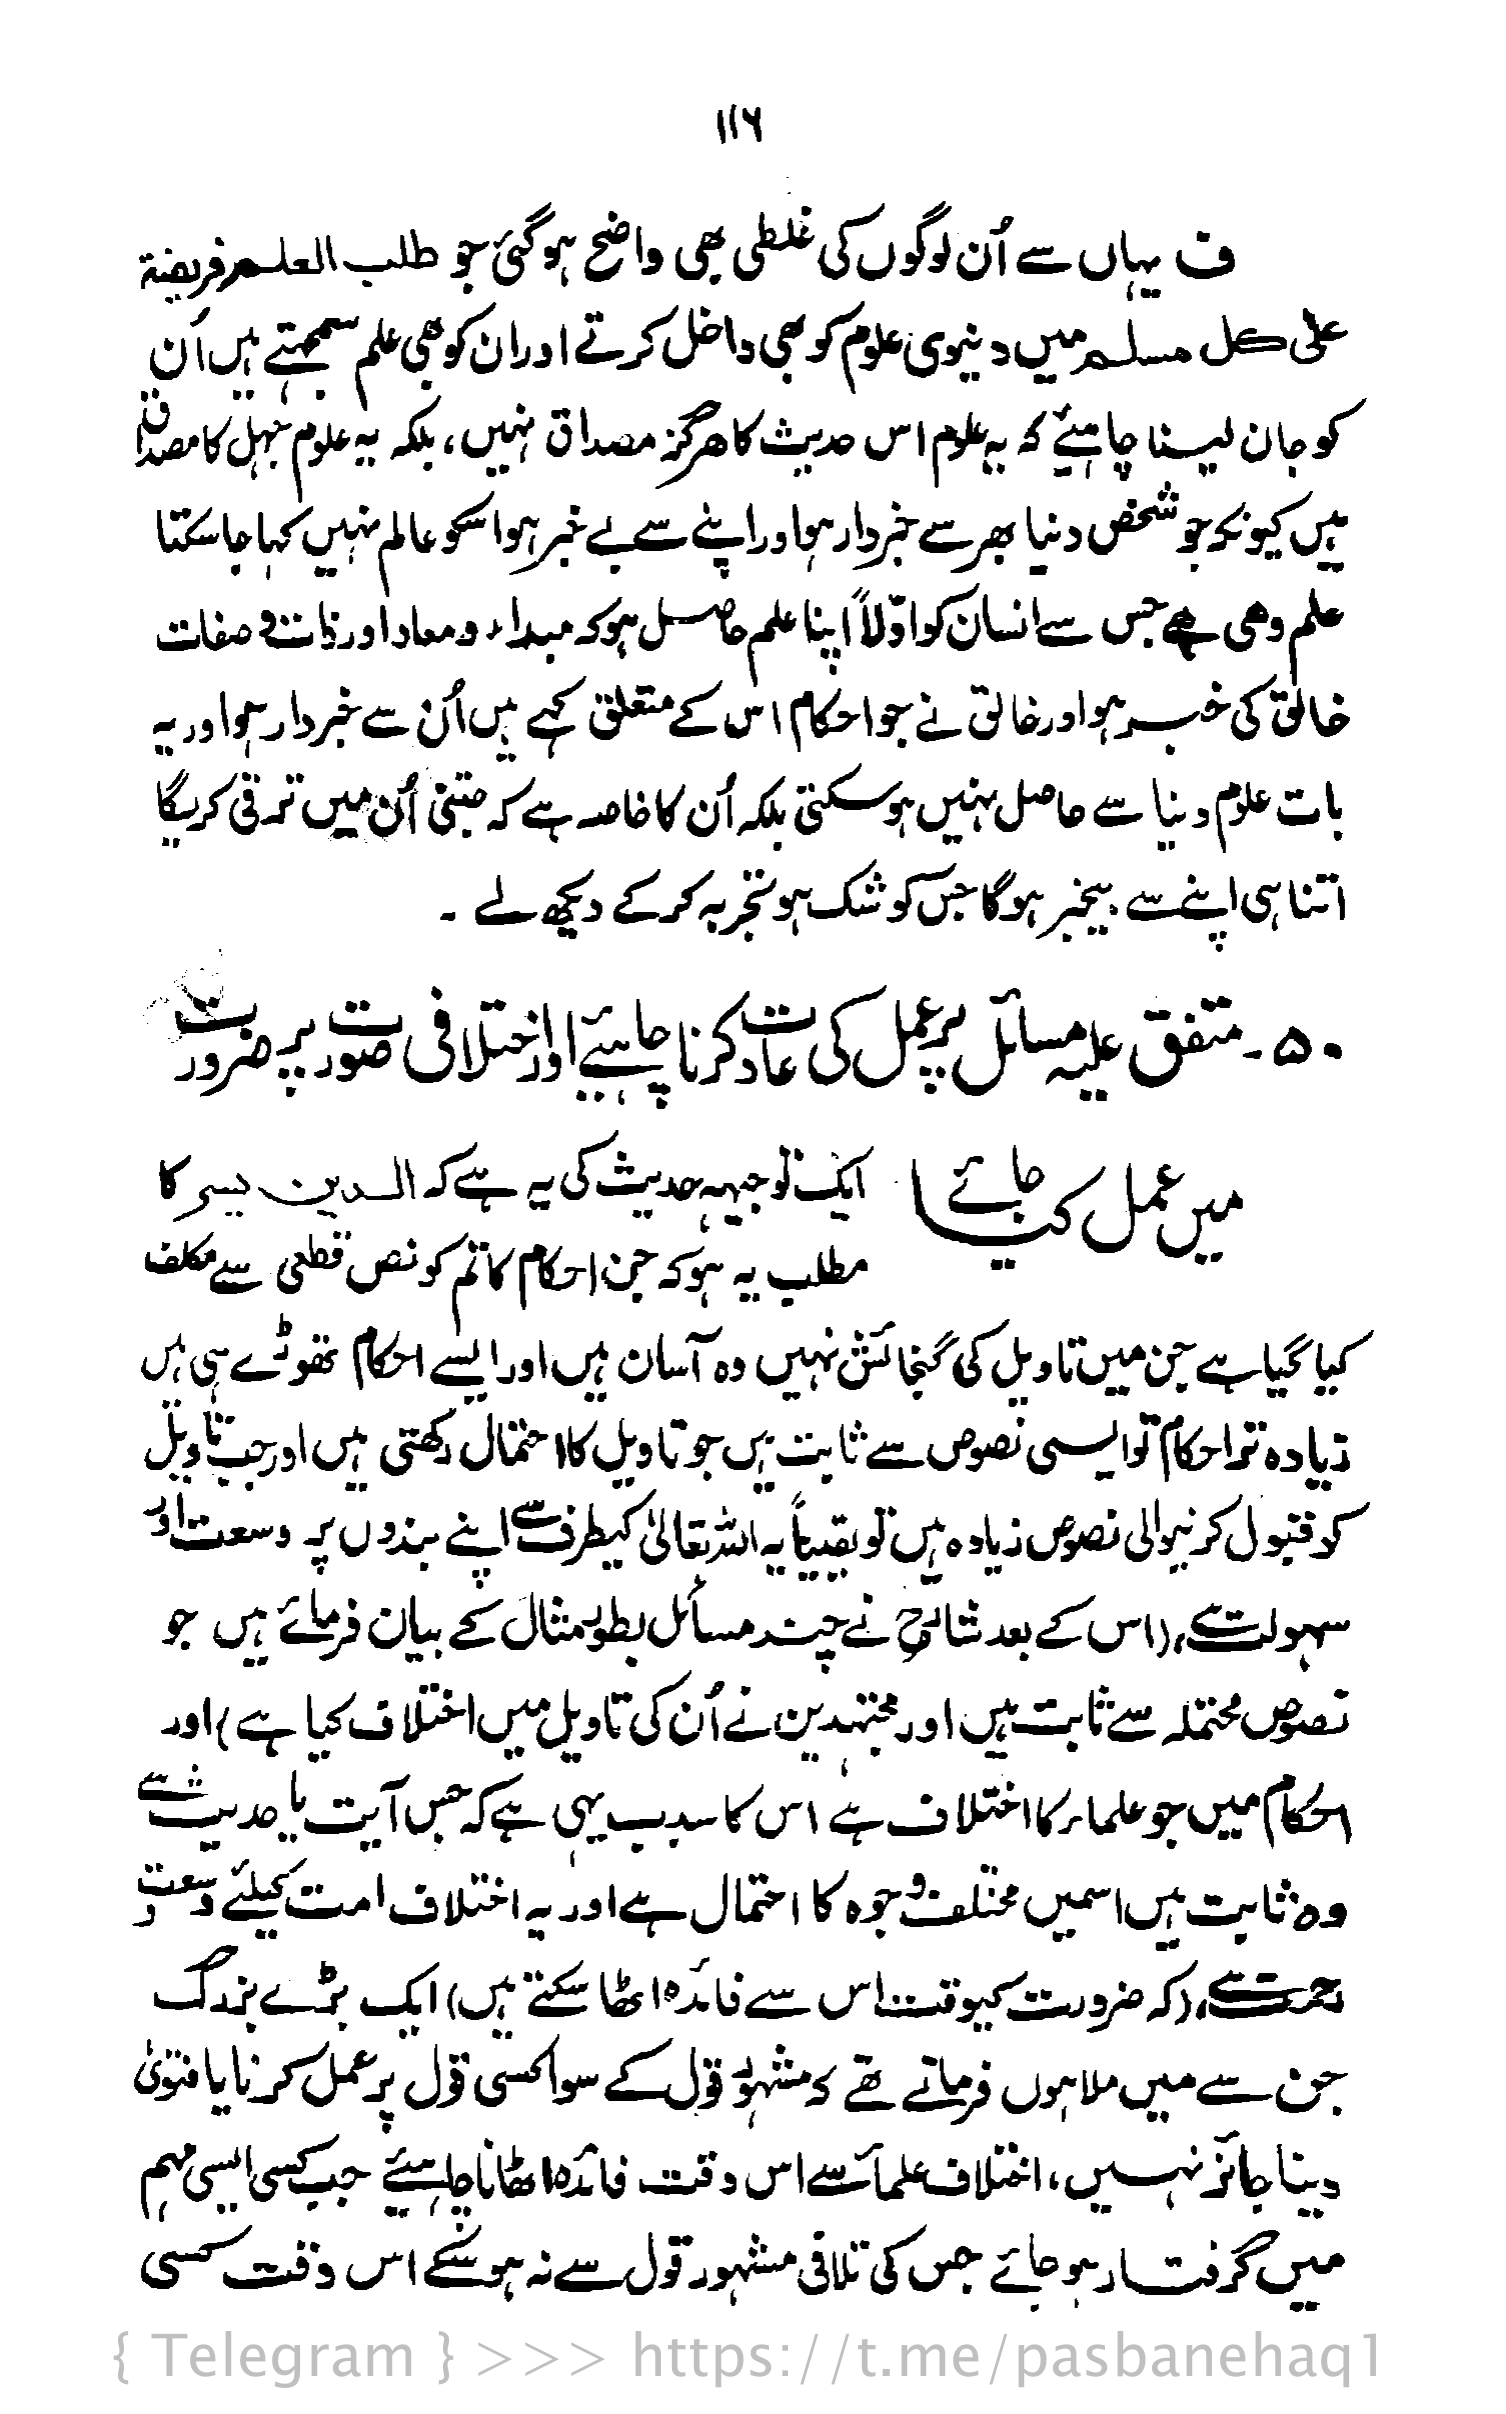 ۱۱۶
ف یہاں سے اُن لوگوں کی غلطی بھی واضح ہوگئی جو طلب العلم فریضة
علی کل مسلم میں دنیوی علوم کو بھی داخل کرتے اور ان کو بھی علم سمجھتے ہیں اُن
کو جان لینا چاہئیے کہ یہ علوم اس حدیث کا ھرگز مصداق نہیں، بلکہ یہ علوم جہل کا مصداق
ہیں کیونکہ جو شخص دنیا بھر سے خبردار ہو اور اپنے سے بے خبر ہو اسکو عالم نہیں کہا جاسکتا
علم وھی ھے جس سے انسان کو اوّلاً اپنا علم حاصل ہو کہ مبداء و معاد اور ذات و صفات
خالق کی خبر ہو اور خالق نے جو احکام اس کے متعلق کہے ہیں اُن سے خبردار ہو اور یہ
بات علوم دنیا سے حاصل نہیں ہوسکتی بلکہ اُن کا خاصہ ہے کہ جتنی اُن میں ترقی کریگا
اتنا ہی اپنے سے بیخبر ہوگا جس کو شک ہو تجربہ کرکے دیکھ لے ۔
۵۰ ۔ متفق علیہ مسائل پر عمل کی عادت کرنا چاہئیے اور اختلافی صورت پر ضرورت
میں عمل کیا جائے
ایک توجیہہ حدیث کی یہ ہے کہ الدین یسر کا
مطلب یہ ہو کہ جن احکام کا تم کو نص قطعی سے مکلف
کیا گیا ہے جن میں تاویل کی گنجائش نہیں وہ آسان ہیں اور ایسے احکام تھوڑے ہی ہیں
زیادہ تر احکام تو ایسی نصوص سے ثابت ہیں جو تاویل کا احتمال رکھتی ہیں اور جب تاویل
کو قبول کرنیوالی نصوص زیادہ ہیں تو یقیناً یہ اللہ تعالیٰ کیطرف سے اپنے بندوں پر وسعت اور
سہولت ہے، (اس کے بعد شارح نے چند مسائل بطور مثال کے بیان فرمائے ہیں جو
نصوص محتملہ سے ثابت ہیں اور مجتہدین نے اُن کی تاویل میں اختلاف کیا ہے) اور
احکام میں جو علماء کا اختلاف ہے اس کا سبب یہی ہے کہ جس آیت یا حدیث سے
وہ ثابت ہیں اسمیں مختلف وجوہ کا احتمال ہے اور یہ اختلاف امت کیلئے وسعت و
رحمت ہے، (کہ ضرورت کیوقت اس سے فائدہ اٹھا سکتے ہیں) ایک بڑے بزرگ
جن سے میں ملا ہوں فرماتے تھے کہ مشہور قول کے سوا کسی قول پر عمل کرنا یا فتویٰ
دینا جائز نہیں، اختلاف علماء سے اس وقت فائدہ اٹھانا چاہئیے جب کسی ایسی مہم
میں گرفتار ہو جائے جس کی تلافی مشہور قول سے نہ ہوسکے اس وقت کسی
{ Telegram } >>> https://t.me/pasbanehaq1